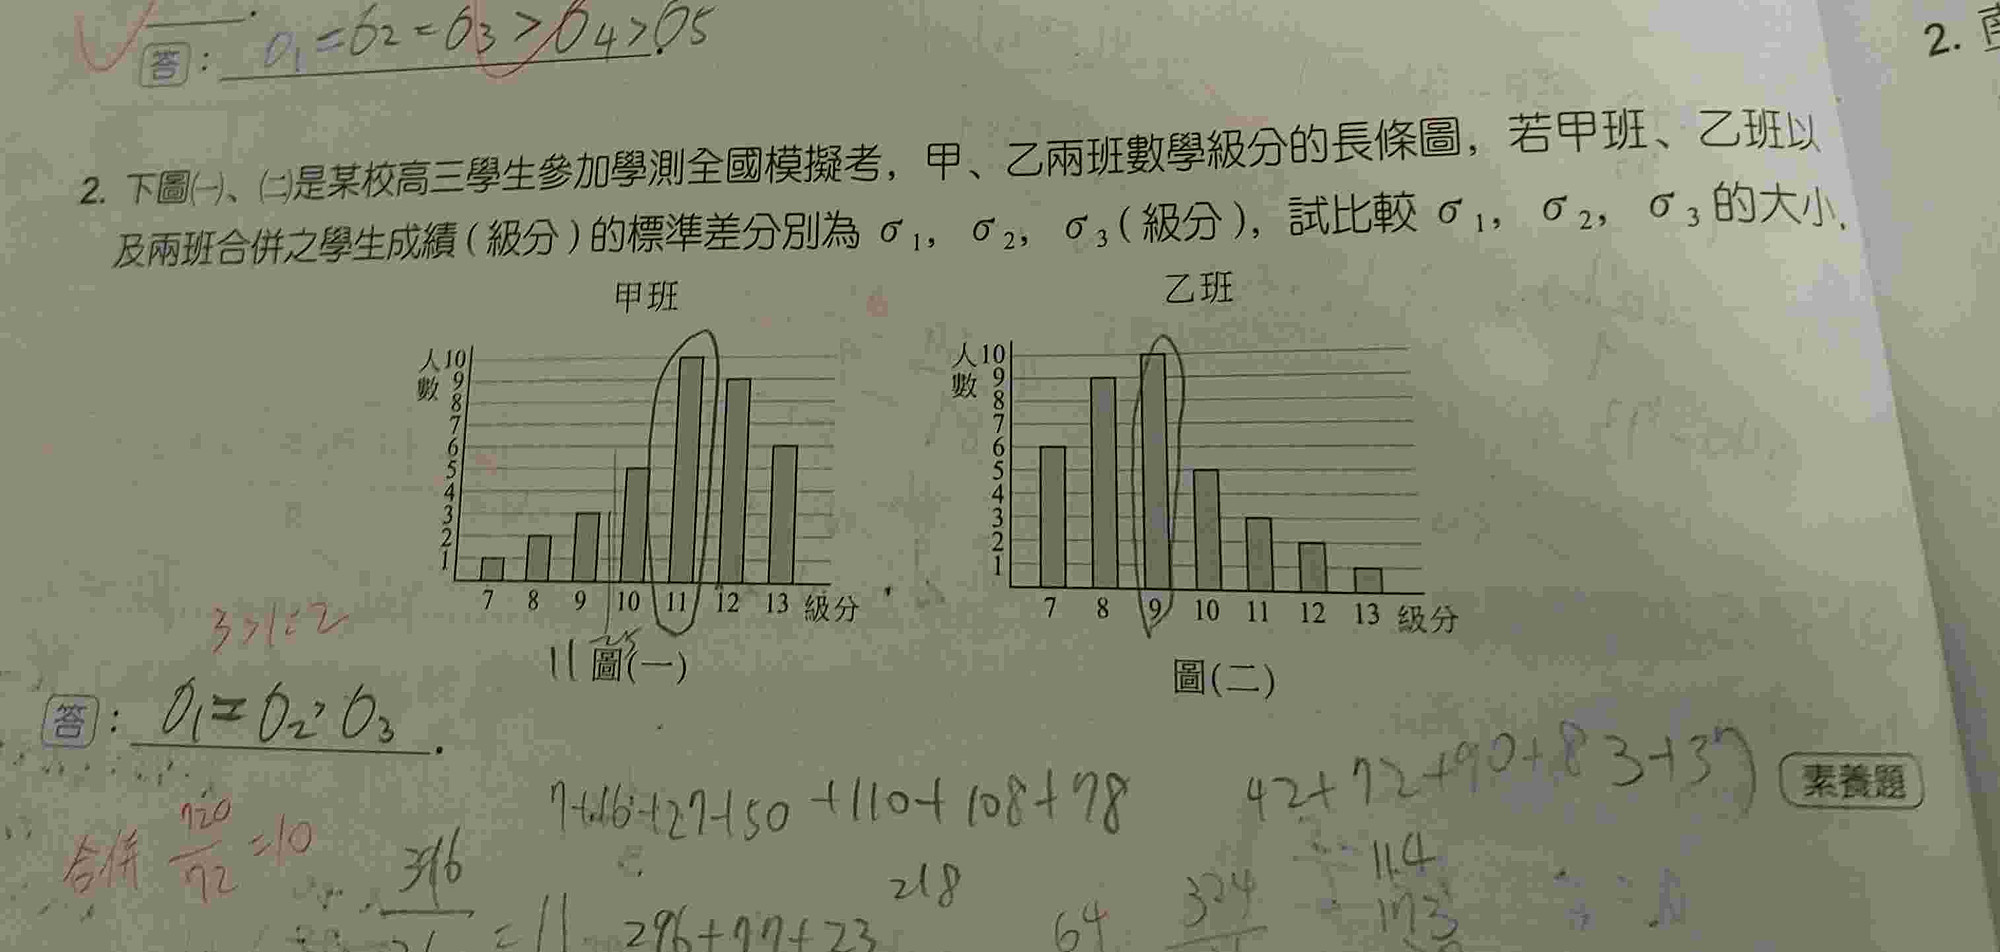 答：σ1=σ2=σ3>σ4>σ5.
2.
2. 下圖㈠、㈡是某校高三學生參加學測全國模擬考，甲、乙兩班數學級分的長條圖，若甲班、乙班以
及兩班合併之學生成績(級分)的標準差分別為 σ1，σ2，σ3(級分)，試比較 σ1，σ2，σ3 的大小.
甲班
乙班
人數
10
9
8
7
6
5
4
3
2
1
7 8 9 10 11 12 13 級分
圖(一)
11
人數
10
9
8
7
6
5
4
3
2
1
7 8 9 10 11 12 13 級分
圖(二)
3>1=2
答：σ1=σ2, σ3.
素養題
7+16+27+50+110+108+78
42+72+90+83+37
合併 720/72=10
396
=11
296+77+23
218
64
324
114
173